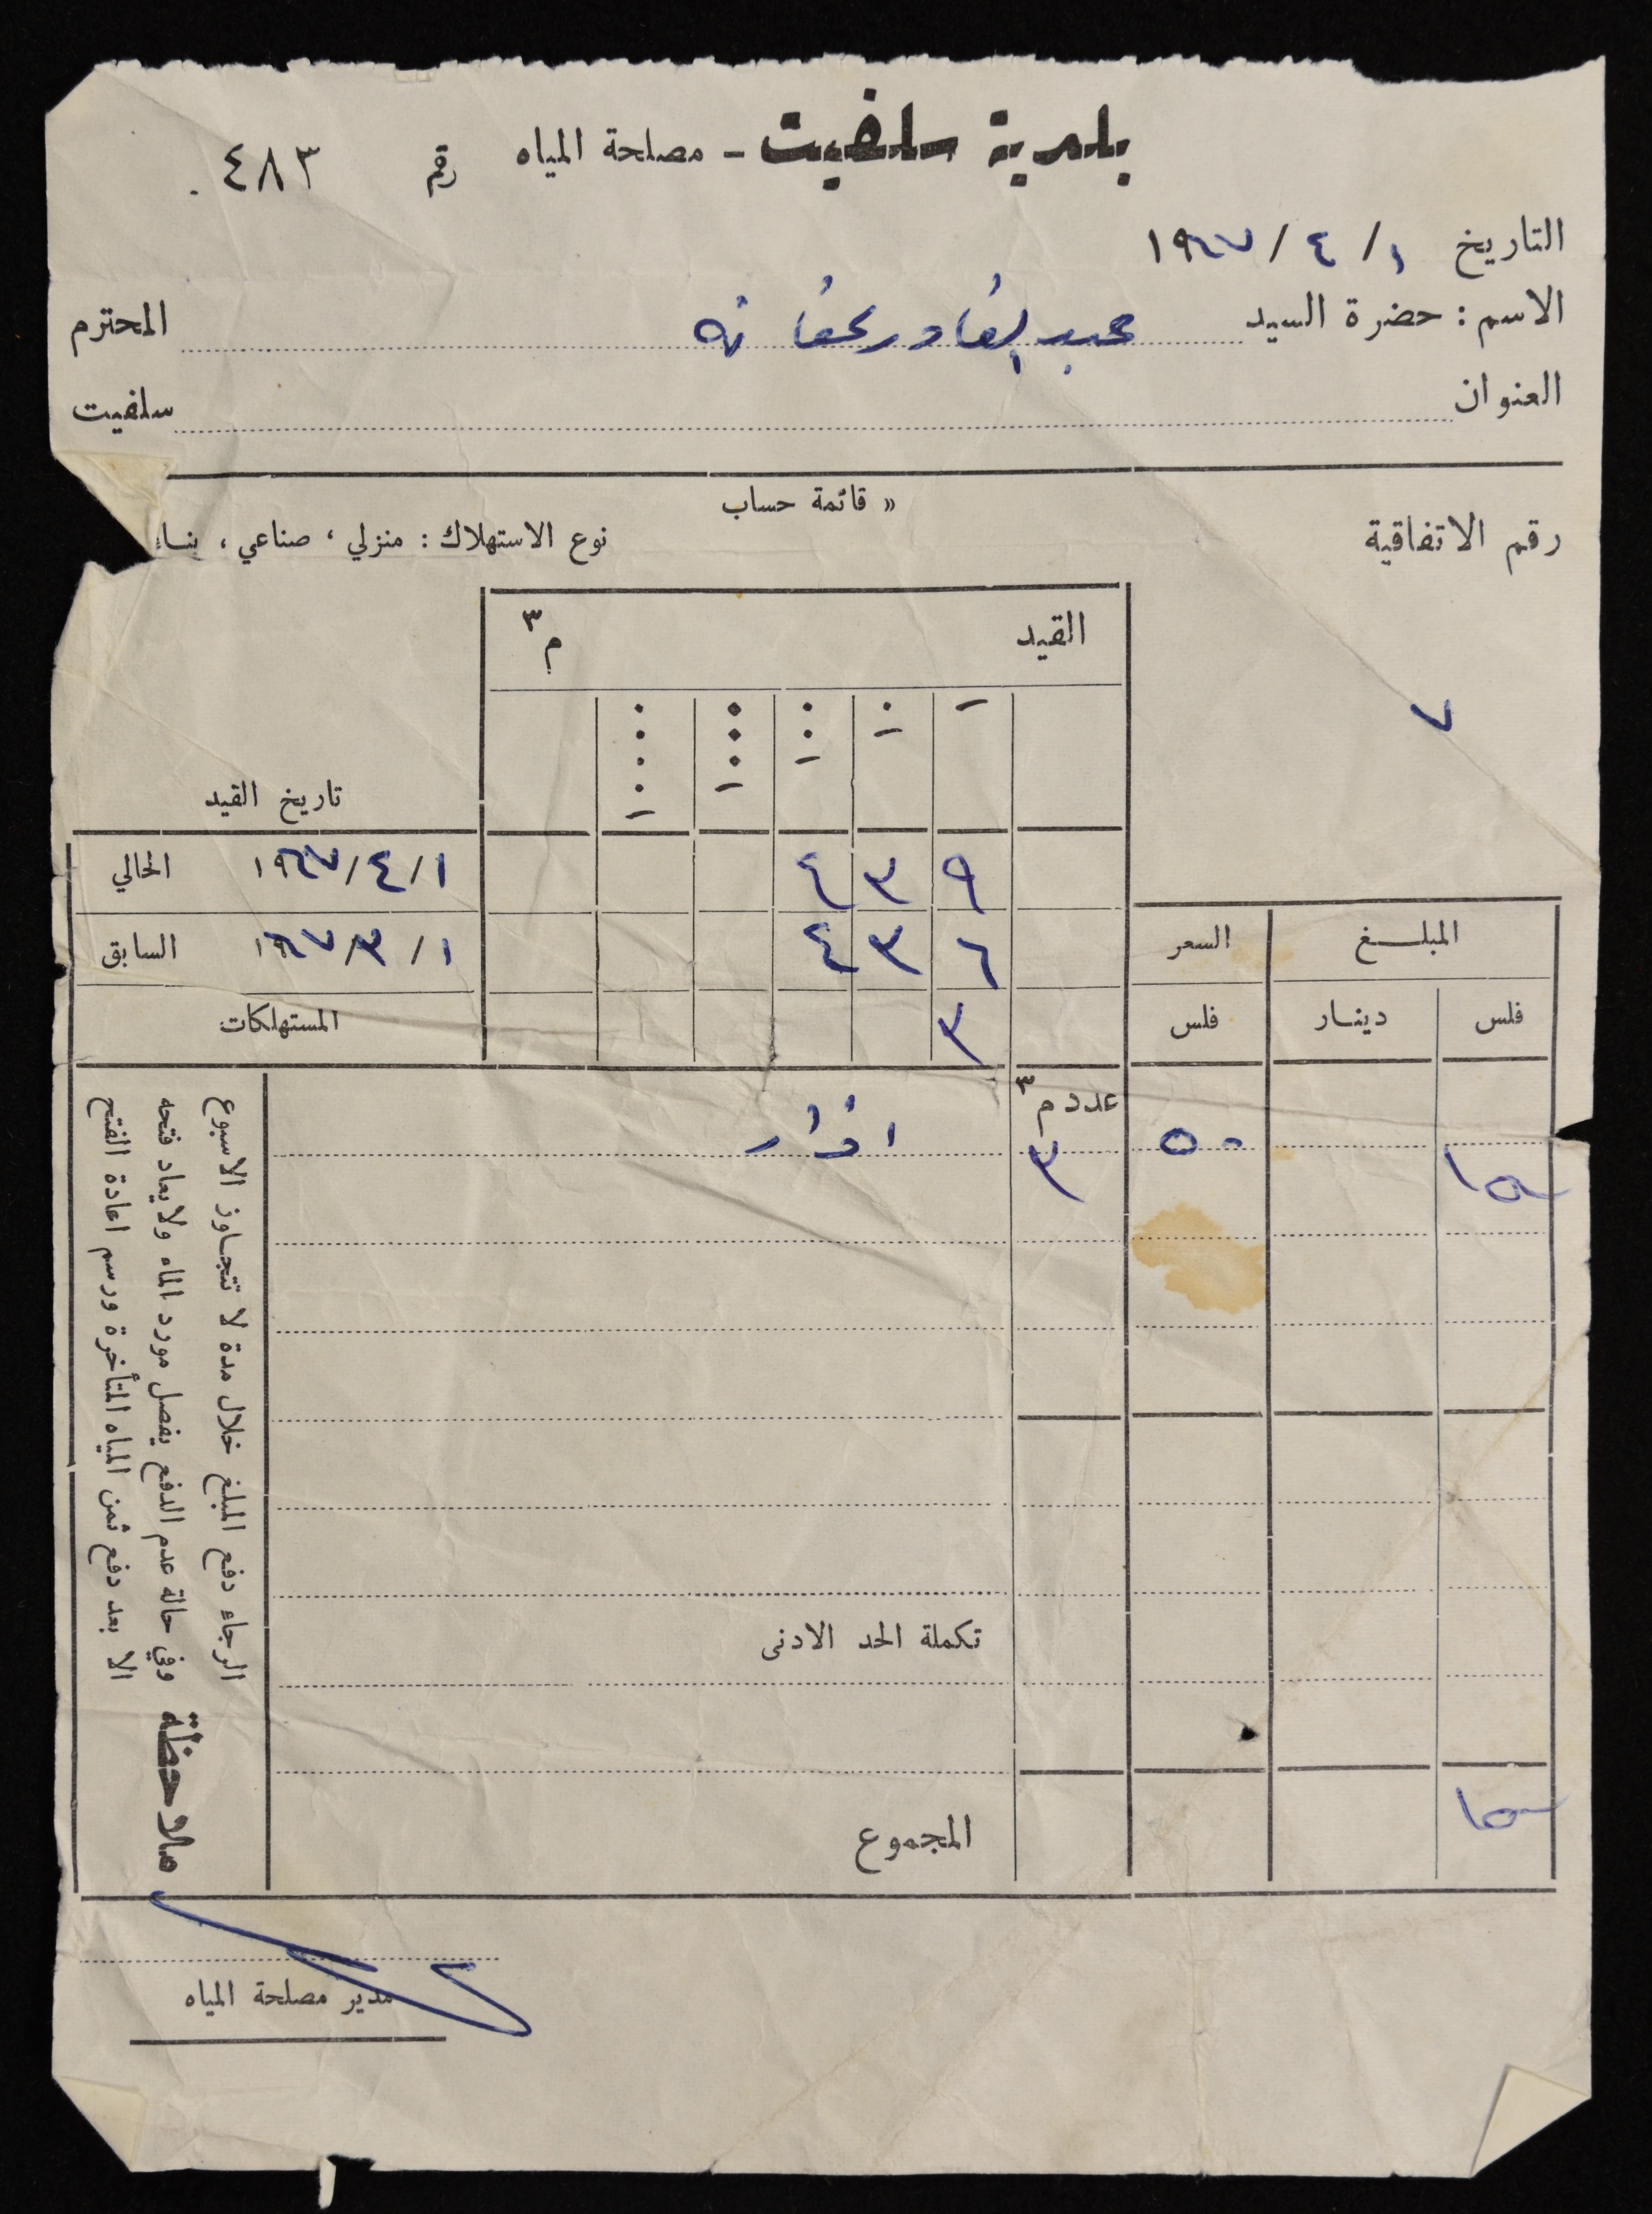 بلدية سلفيت - مصلحة المياه رقم ٤٨٣
التاريخ ١ / ٤ / ١٩٦٧
الاسم : حضرة السيد عبد القادر عفانه المحترم
العنوان سلفيت
« قائمة حساب
رقم الاتفاقية نوع الاستهلاك : منزلي ، صناعي ، بناء
٧
القيد م٣
تاريخ القيد
٩ ٣ ٤ ١ / ٤ / ١٩٦٧ الحالي
٦ ٣ ٤ ١ / ٣ / ١٩٦٧ السابق
٣ المستهلكات
المبلغ السعر
فلس دينار فلس
عدد م٣
١٥٠ ٥٠ ٣
تكملة الحد الادنى
١٥٠ المجموع
ملاحظة
الرجاء دفع المبلغ خلال مدة لا تتجاوز الاسبوع
وفي حالة عدم الدفع يفصل مورد الماء ولا يعاد فتحه
الا بعد دفع ثمن المياه المتأخرة ورسم اعادة الفتح
مدير مصلحة المياه